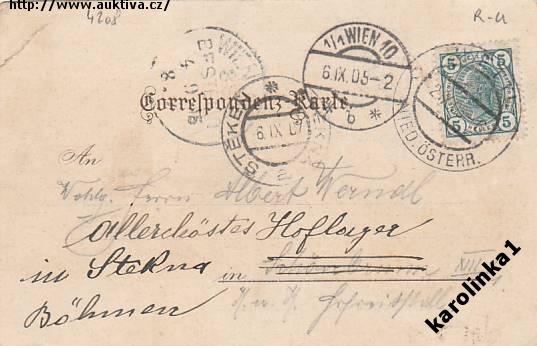 https://www.auktiva.cz/
4208
R-U
WIEN
1/1 WIEN 10
6.IX.05-2
b *
5 5
5 5
NIED. ÖSTERR.
Correspondenz-Karte.
STEKEN
6.IX 07
a
An
Herrn Albert Werndl
Allerhöstes Hoflager
in Stekna in Schönbrunn XIII
Böhmen
karolinka1